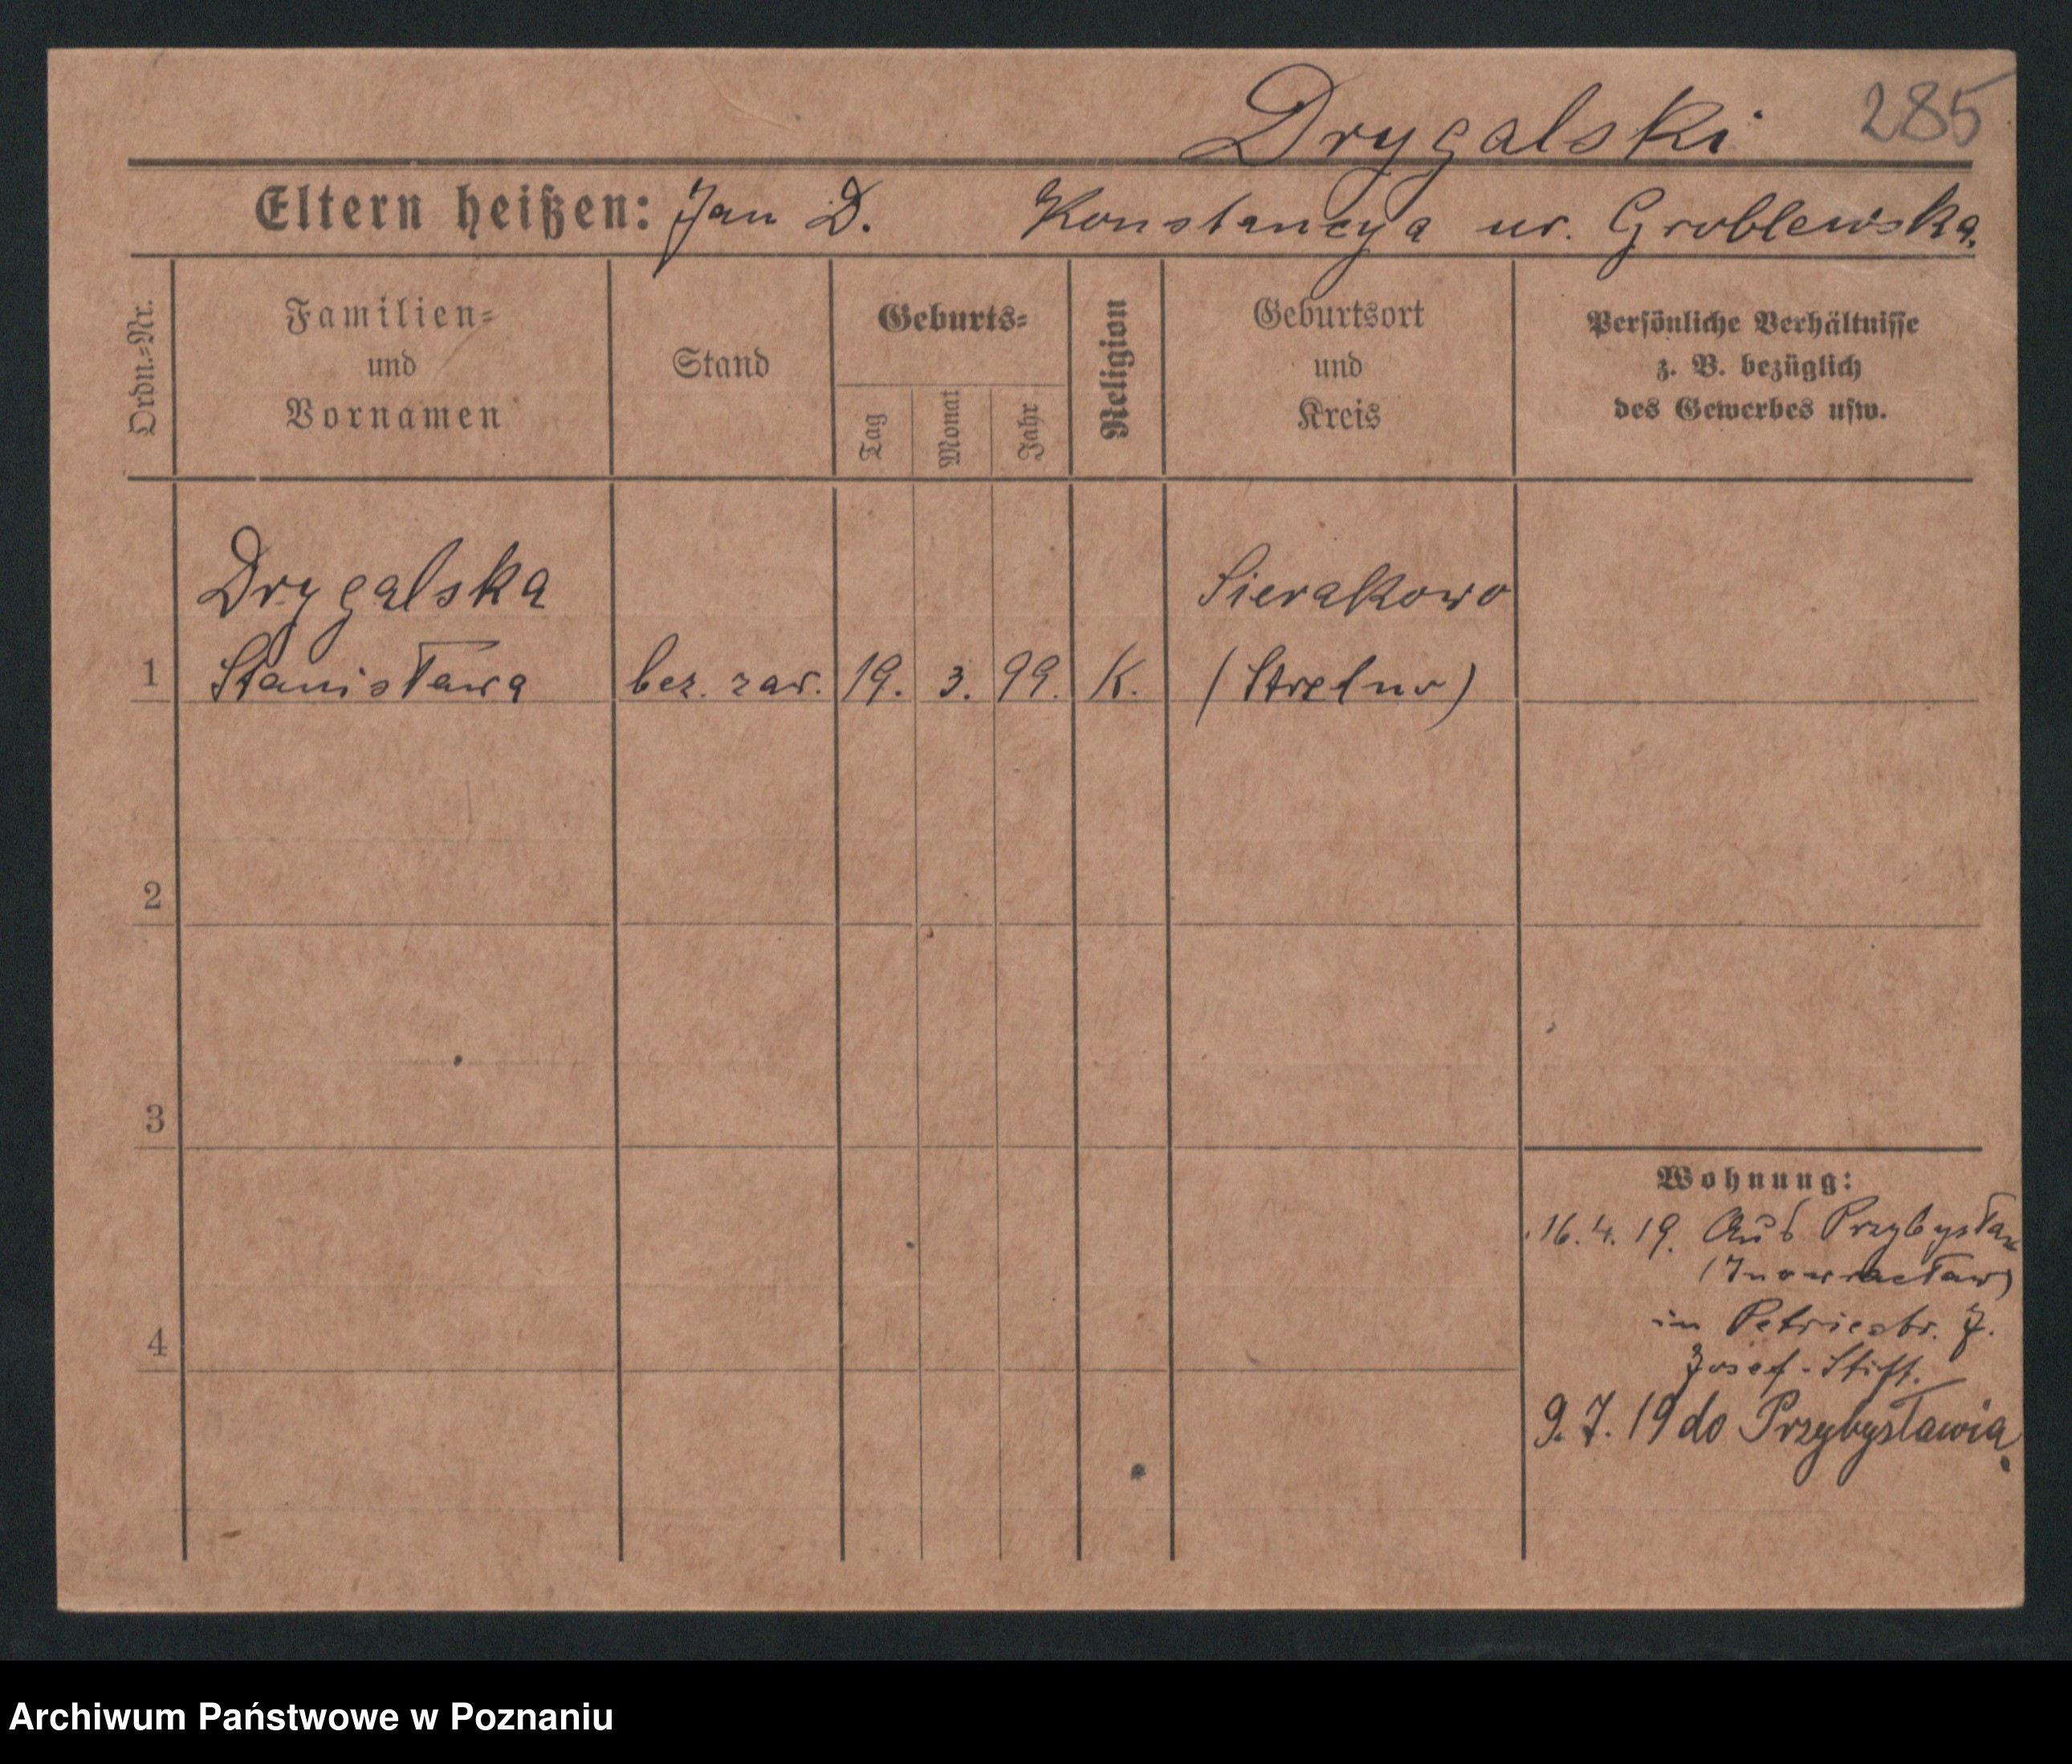 Drygalski 285
Eltern heißen: Jan D. Konstancya ur. Groblewska.
Ordn.-Nr.
Familien- und Vornamen
Stand
Geburts-
Tag
Monat
Jahr
Religion
Geburtsort und Kreis
Persönliche Verhältnisse
z. B. bezüglich
des Gewerbes usw.
Drygalska Sierakowo
1 Stanisława bez. zaw. 19. 3. 99. K. (Strelno)
2
3
4
Wohnung:
16.4.19. Aus
(Inowracław)
in Petriestr. 7.
Josef-Stift.
9.7.19 do Przybysławia
Archiwum Państwowe w Poznaniu